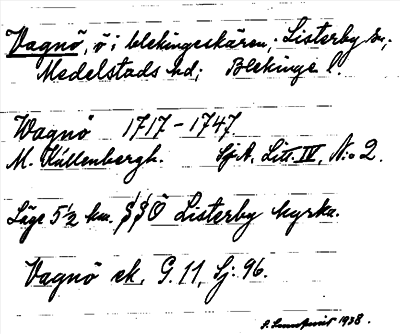 Vagnö, ö i blekingeskären; Listerby sn;
Medelstads hd; Blekinge l.
Wagnö 1717-1747
M. Kullenbergh. Sj. A. Litt. IV, N:o 2.
Läge 5½ km. SSÖ Listerby kyrka.
Vagnö ek, G. 11, Sj: 96.
1938.